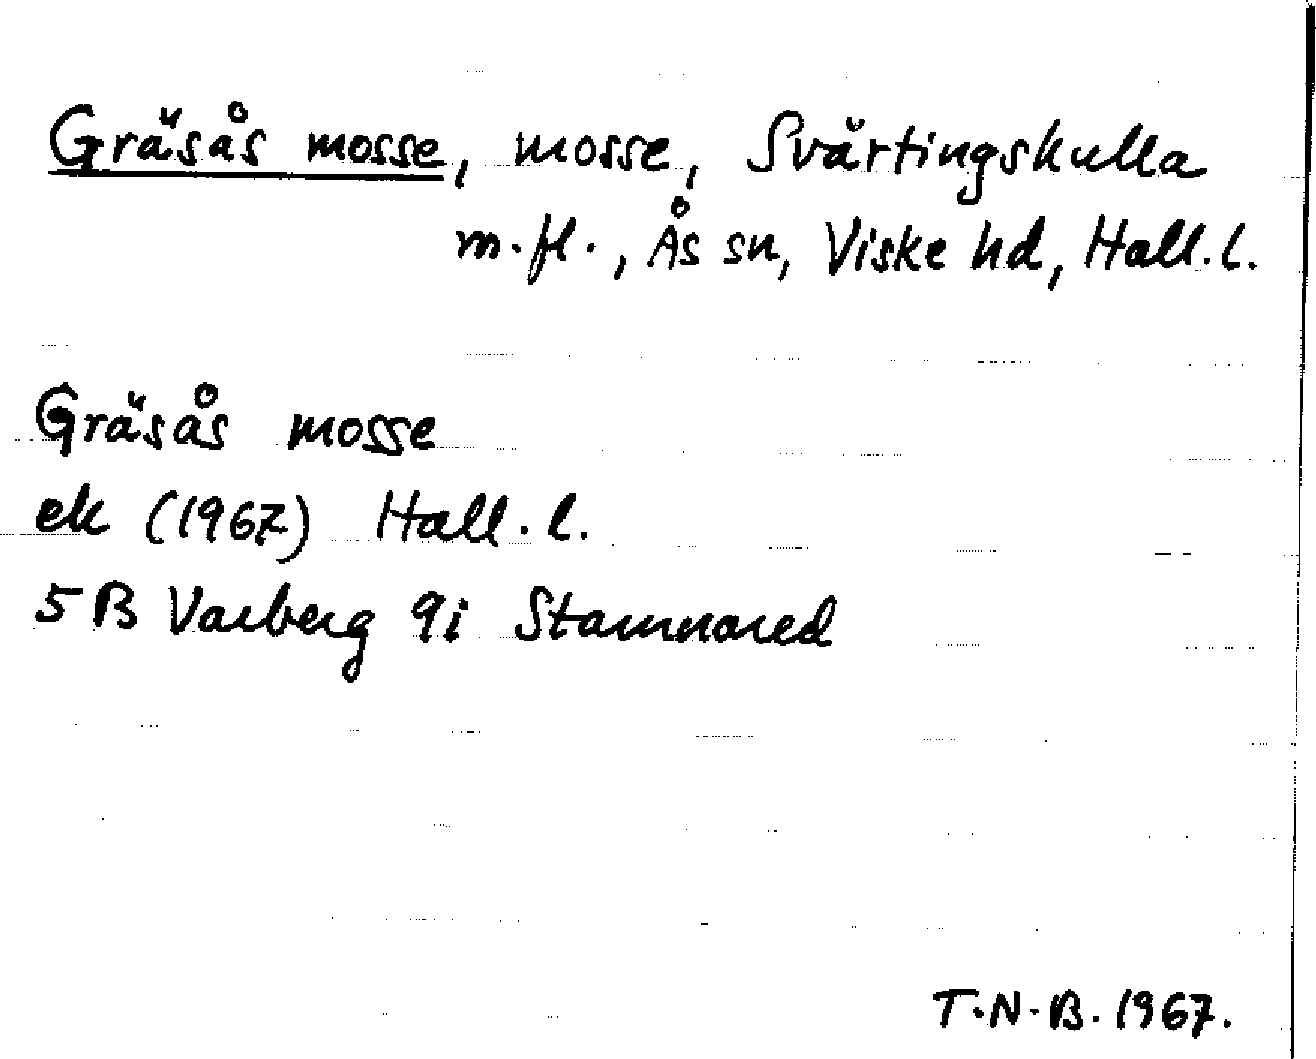 Gräsås mosse, mosse, Svärtingskulla
m.fl., Ås sn, Viske hd, Hall.l.
Gräsås mosse
ek (1967) Hall.l.
5B Varberg 9i Stamnared
T.N.B. 1967.